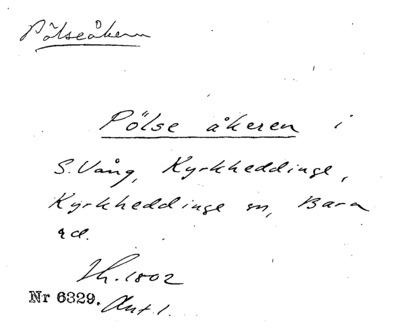 Pölseåkern
Pölse åkeren i
S. Vång, Kyrkheddinge,
Kyrkheddinge sn, Bara
hd.
Sk. 1802
Nr 6329. Akt 1.